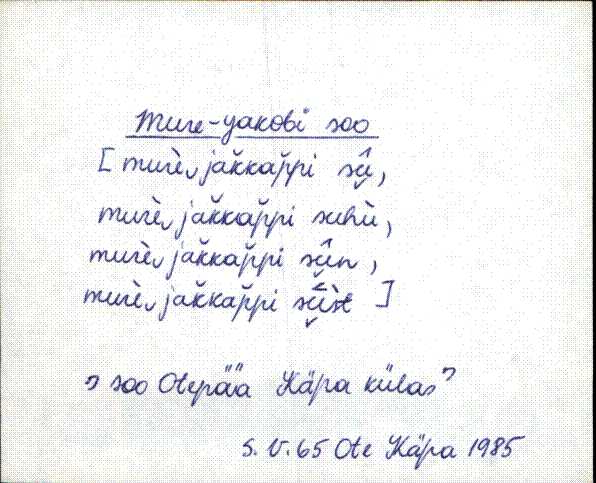 Mure-Jakobi soo
[murè˰ jăkkăp̆pi sû̬,
murè˰ jăkkăp̆pi suhù,
murè˰ jăkkăp̆pi sûn,
murè˰ jăkkăp̆pi sṷ̆̀st ]
„soo Otepää Käpa külas”
S. V. 65 Ote Käpa 1985